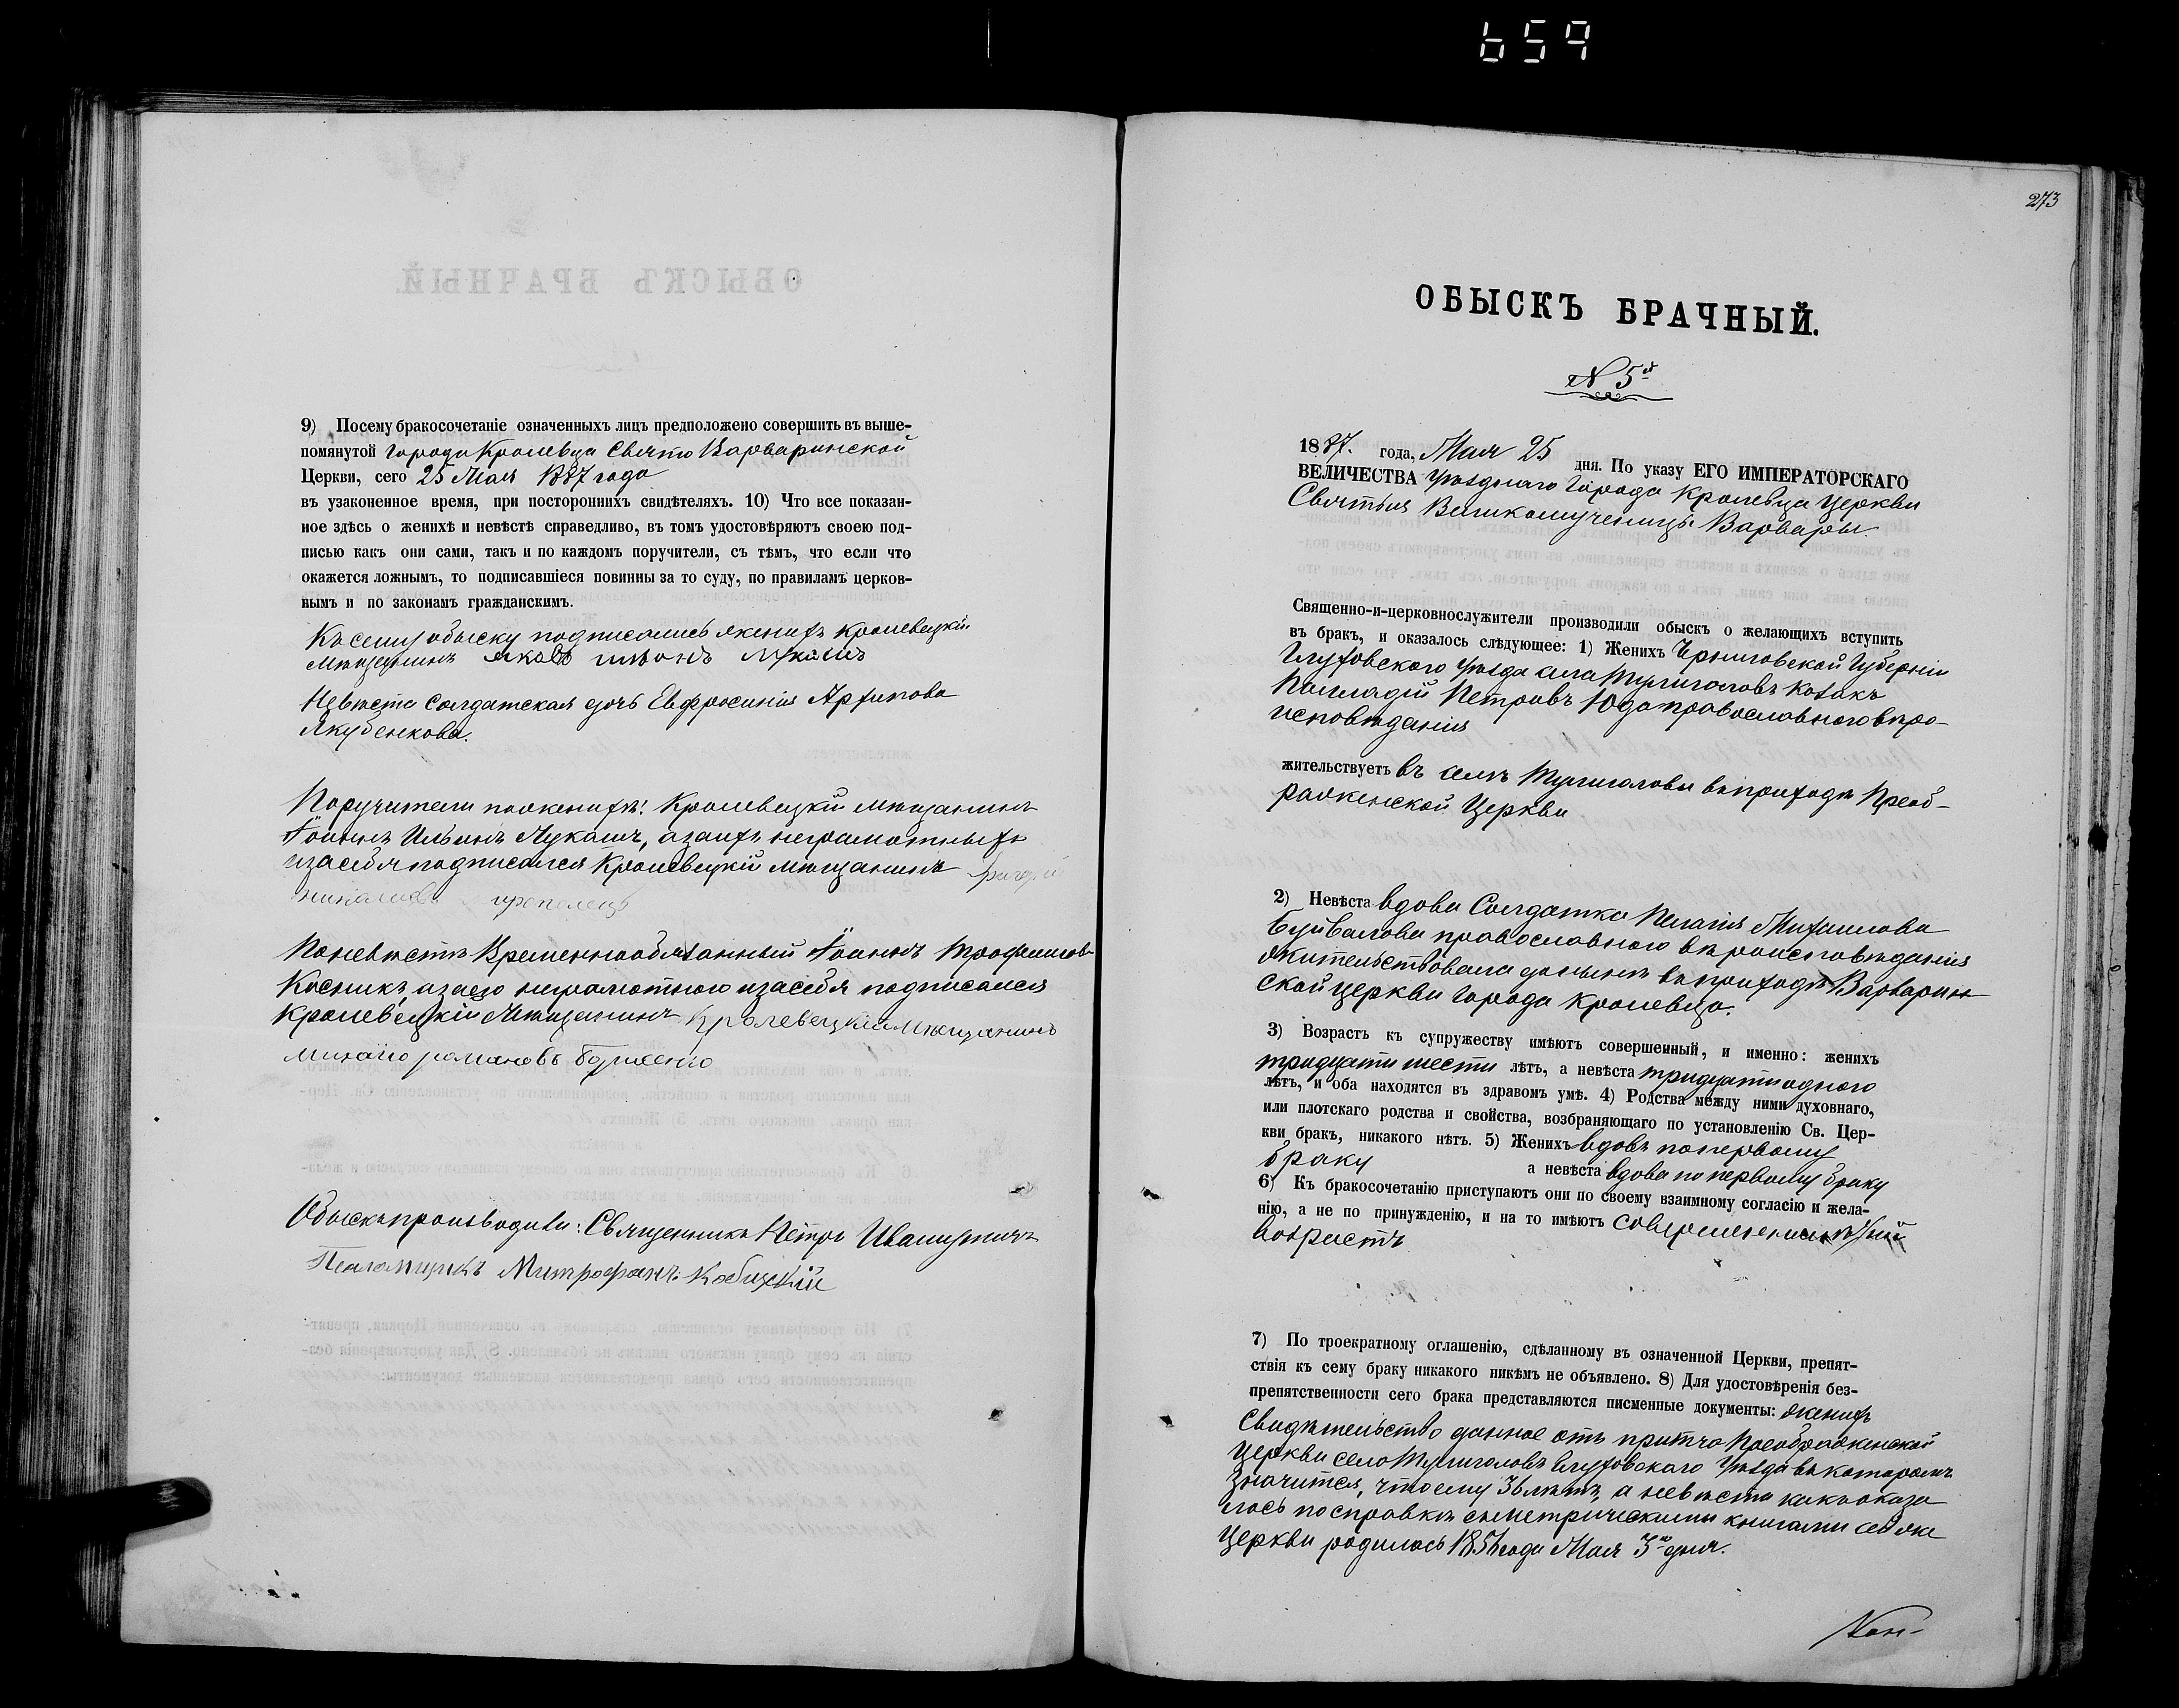 659
9) Посему бракосочетаніе означенныхъ лицъ предположено совершить въ выше-
помянутой города Кролевца Свято Варваринской
Церкви, сего 25 Мая 1887 года
въ узаконенное время, при постороннихъ свидѣтеляхъ. 10) Что все показан-
ное здѣсь о женихѣ и невѣстѣ справедливо, въ томъ удостовѣряютъ своею под-
писью какъ они сами, такъ и по каждомъ поручители, съ тѣмъ, что если что
окажется ложнымъ, то подписавшіеся повинны за то суду, по правиламъ церков-
нымъ и по законамъ гражданскимъ.
Къ сему обыску подписались женихъ Кролевецкій
мѣщанинъ яковъ
Невѣста Солдатская дочь Евфросинія Архипова
Якубенкова.
Поручители по женихѣ: Кролевецкій мѣщанинъ
Іоаннъ Ильинъ Лукашъ, а за ихъ неграмотныхъ
и за себя подписался Кролевецкій мѣщанинъ
По невѣстѣ Временнообязанный Іоаннъ Трофимовъ
Косникъ, а за его неграмотного и за себя подписался
Кролевецкій Мѣщанинъ Кролевецкій мѣщанинъ
романовъ
Обыскъ производили: Священникъ Петръ
Псаломщикъ Митрофанъ
273
ОБЫСКЪ БРАЧНЫЙ.
№ 5й
1887. года, Мая 25 дня. По указу ЕГО ИМПЕРАТОРСКАГО
ВЕЛИЧЕСТВА Уѣзднаго Города Кролевца Церкви
Святыя Великомученицы Варвары.
Священно-и-церковнослужители производили обыскъ о желающихъ вступить
въ бракъ, и оказалось слѣдующее: 1) Женихъ Черниговской Губерніи
Глуховского Уѣзда села Тулиголовъ Козакъ
Палладій Петровъ Юда православного вѣро-
исповѣданія
жительствуетъ въ селѣ Тулиголовы въ приходѣ Преоб-
раженской Церкви
2) Невѣста вдова Солдатка Пелагія Михаилова
Буйвалова православного вѣроисповѣданія
жительствовала донынѣ въ приходѣ Варварин-
ской церкви города Кролевца.
3) Возрастъ къ супружеству имѣютъ совершенный, и именно: женихъ
тридцати шести лѣтъ, а невѣста тридцати одного
лѣтъ, и оба находятся въ здравомъ умѣ. 4) Родства между ними духовнаго,
или плотскаго родства и свойства, возбраняющаго по установленію Св. Цер-
кви бракъ, никакого нѣтъ. 5) Женихъ вдовъ по первому
браку а невѣста вдова по первому браку
6) Къ бракосочетанію приступаютъ они по своему взаимному согласію и жела-
нію, а не по принужденію, и на то имѣютъ
возрастъ
7) По троекратному оглашенію, сдѣланному въ означенной Церкви, препят-
ствія къ сему браку никакого никѣмъ не объявлено. 8) Для удостовѣренія без-
препятственности сего брака представляются писменные документы: женихъ
Свидѣтельство данное отъ притча Преображенской
Церкви села Тулиголовъ Глуховского Уѣзда въ которомъ
Значится, что ему 36 лѣтъ, а невѣста какъ оказа
лось по справкѣ съ метрическими книгами сей же
Церкви родилась 1856 года Мая 3го дня.